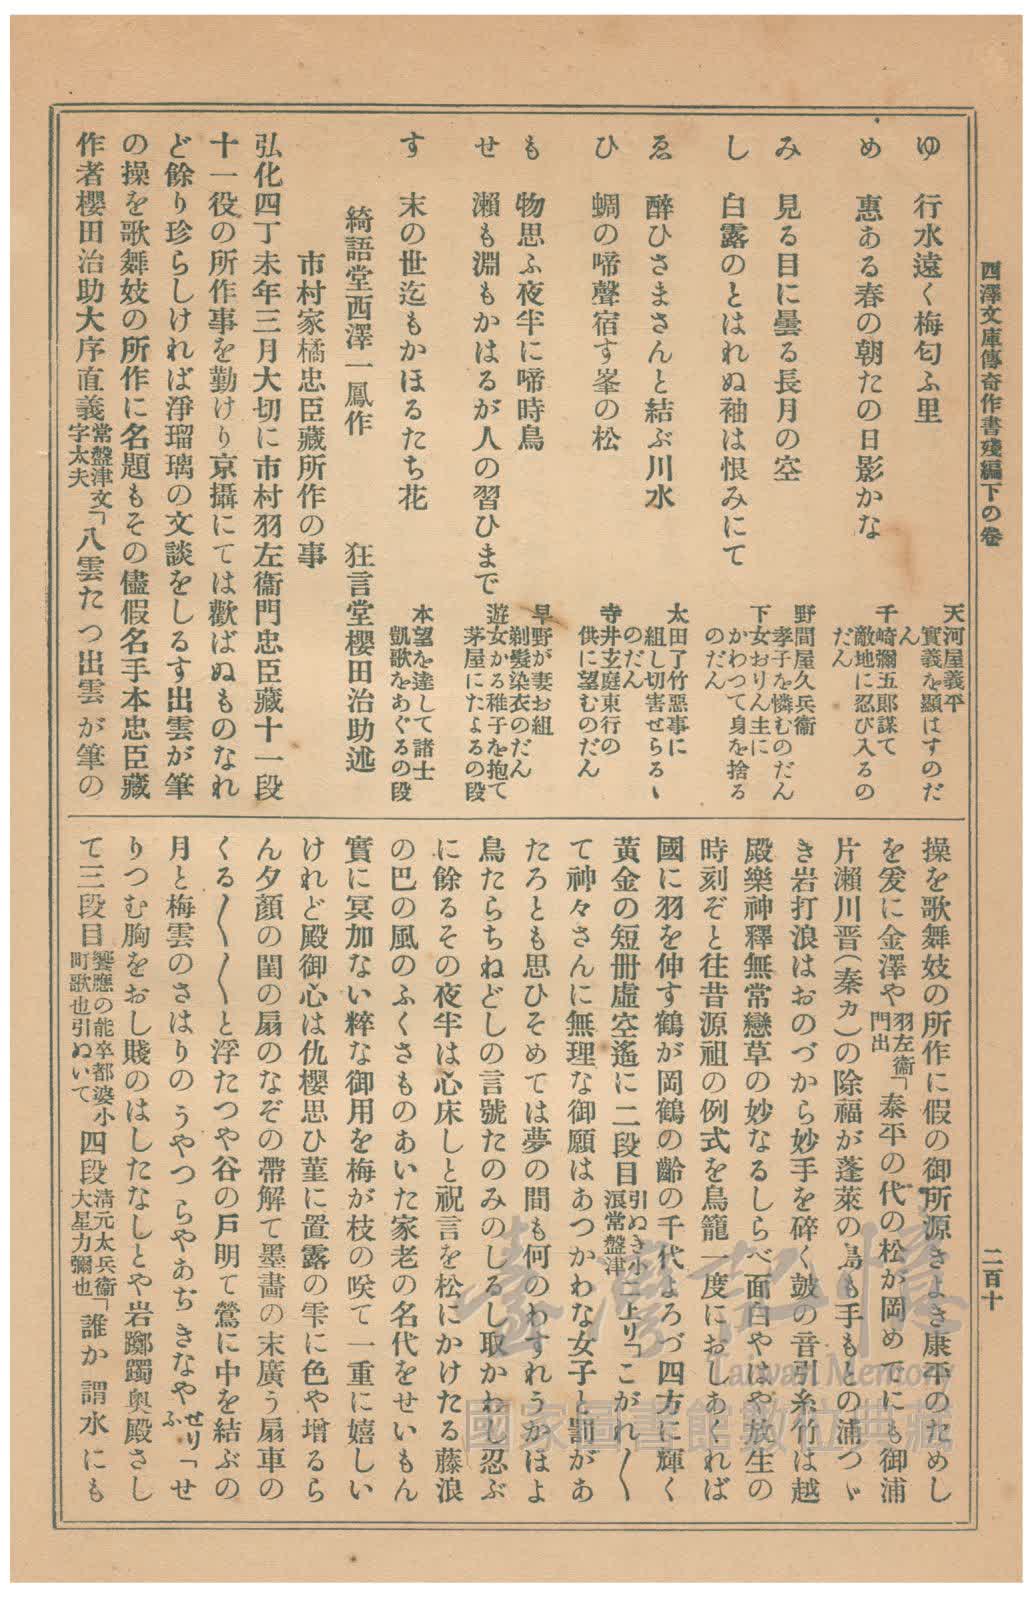 西澤文庫傳奇作書殘編下の卷
二百十
ゆ 行水遠く梅匂ふ里
天河屋義平
實義を顯はすのだ
ん
め 惠ある春の朝たの日影かな
千崎彌五郎謀て
敵地に忍び入るの
だん
み 見る目に曇る長月の空
野間屋久兵衞
孝子を憐むのだん
し 白露のとはれぬ袖は恨みにて
下女おりん主に
かわつて身を捨る
のだん
ゑ 醉ひさまさんと結ぶ川水
太田了竹惡事に
組し切害せらるゝ
のだん
ひ 蜩の啼聲宿す峯の松
寺井玄庭東行の
供に望むのだん
も 物思ふ夜半に啼時鳥
早野が妻お組
剃髮染衣のだん
せ 瀨も淵もかはるが人の習ひまで
遊女かる稚子を抱て
茅屋にたよるの段
す 末の世迄もかほるたち花
本望を達して諸士
凱歌をあぐるの段
綺語堂西澤一鳳作 狂言堂櫻田治助述
市村家橘忠臣藏所作の事
弘化四丁未年三月大切に市村羽左衞門忠臣藏十一段
十一役の所作事を勤けり京攝にては歡ばぬものなれ
ど餘り珍らしければ淨瑠璃の文談をしるす出雲が筆
の操を歌舞妓の所作に名題もその儘假名手本忠臣藏
作者櫻田治助大序直義常盤津文字太夫「八雲たつ出雲が筆の
操を歌舞妓の所作に假の御所源きよき康平のためし
を爰に金澤や羽左衞門出「泰平の代の松が岡めでにも御浦
片瀨川晋(秦カ)の除福が蓬萊の島も手もとの浦つゞ
き岩打浪はおのづから妙手を碎く皷の音引糸竹は越
殿樂神釋無常戀草の妙なるしらべ面白やはや放生の
時刻ぞと往昔源祖の例式を鳥籠一度におしあくれば
國に羽を伸す鶴が岡鶴の齡の千代よろづ四方に輝く
黃金の短册虛空遙に二段目引ぬき小浪常盤津二上り「こがれ〳〵
て神々さんに無理な御願はあつかわな女子と罰があ
たろとも思ひそめては夢の間も何のわすれうかほよ
鳥たらちねどしの言號たのみのしるし取かわし忍ぶ
に餘るその夜半は心床しと祝言を松にかけたる藤浪
の巴の風のふくさものあいた家老の名代をせいもん
實に冥加ない粹な御用を梅が枝の咲て一重に嬉しい
けれど殿御心は仇櫻思ひ菫に置露の雫に色や增るら
ん夕顏の閨の扇のなぞの帶解て墨畵の末廣う扇車の
くる〳〵〳〵と浮たつや谷の戸明て鶯に中を結ぶの
月と梅雲のさはりのうやつらやあぢきなやせりふ「せ
りつむ胸をおし賤のはしたなしとや岩躑躅奧殿さし
て三段目饗應の能卒都婆小町歌也引ぬいて四段淸元太兵衞大星力彌也「誰か謂水にも
臺灣記憶
Taiwan Memory
國家圖書館數位典藏